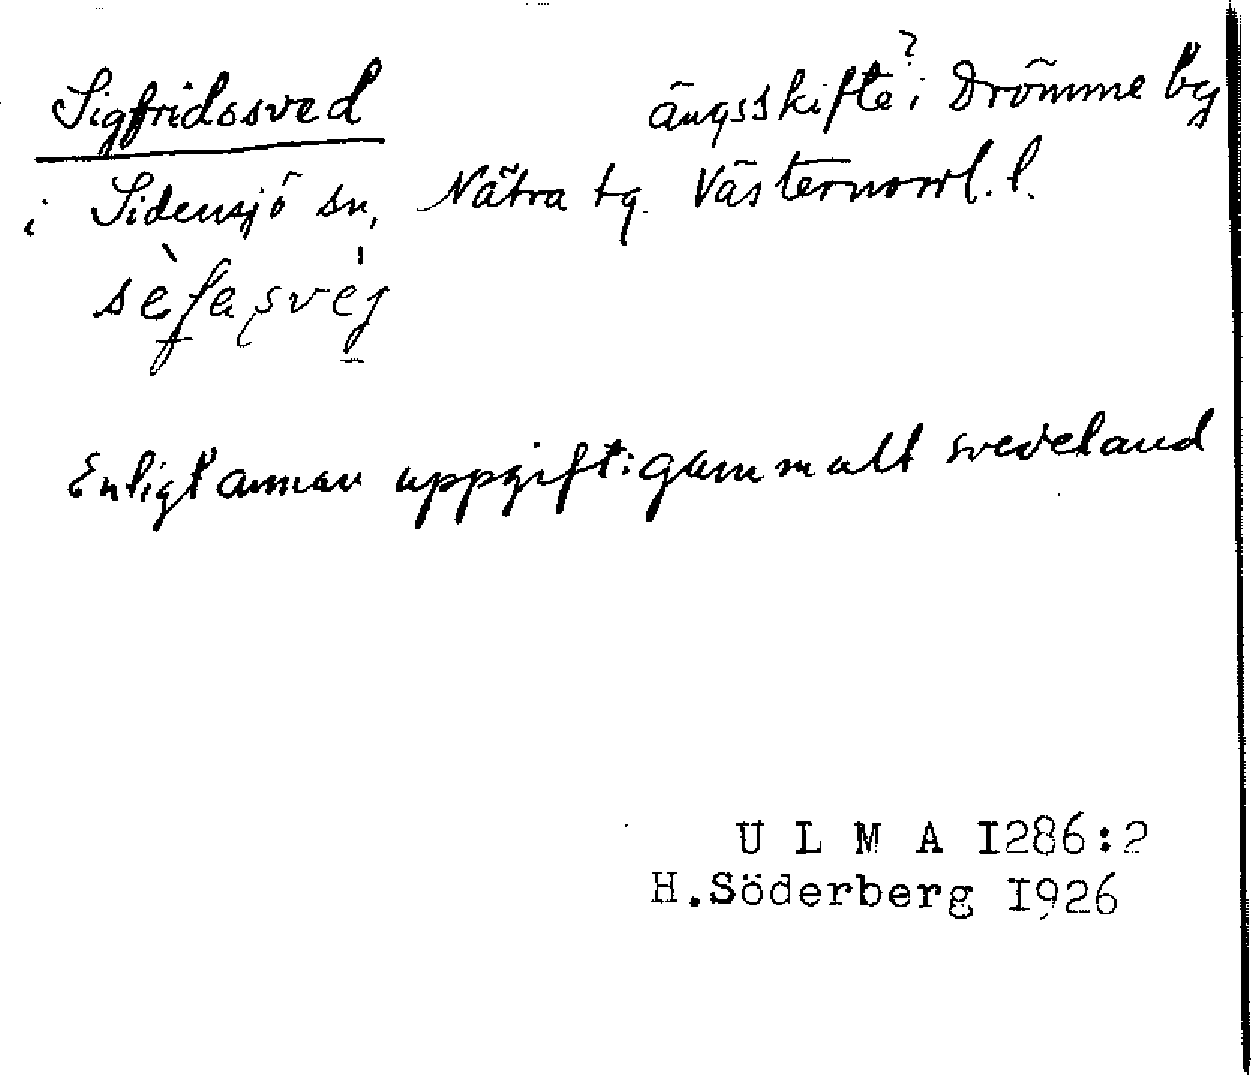 Sigfridssved ängsskifte? i Drömme by
i Sidensjö sn, Nätra tg. Västernorrl. l.
Enligt annan uppgift: gammalt svedeland
U L M A I286:2
H.Söderberg I926